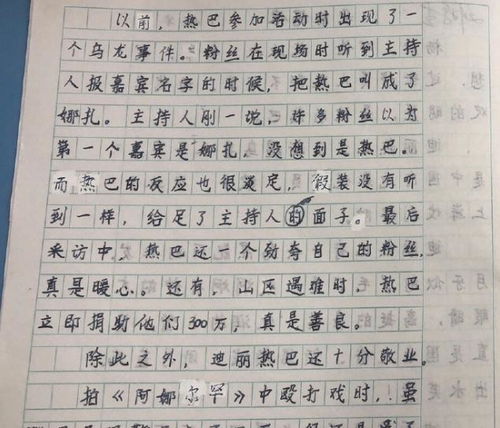 以前，热巴参加活动时出现了一
个乌龙事件。粉丝在现场时听到主持
人报嘉宾名字的时候，把热巴叫成了
娜扎。主持人刚一说，许多粉丝以为
第一个嘉宾是娜扎，没想到是热巴。
而热巴的反应也很淡定，假装没有听
到一样，给足了主持人的面子。最后
采访中，热巴还一个劲夸自己的粉丝，
真是暖心。还有，山区遇难时，热巴
立即捐助他们300万，真是善良。
除此之外，迪丽热巴还十分敬业。
拍《阿娜尔罕》中殴打戏时，虽